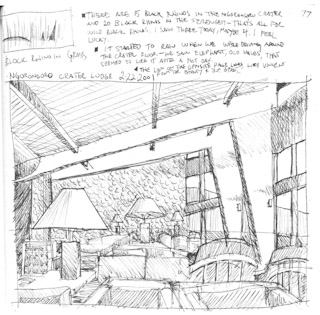 77
• THERE ARE 15 BLACK RHINOS IN THE NGORONGORO CRATER
AND 20 BLACK RHINOS IN THE SERENGETI - THAT'S ALL FOR
WILD BLACK RHINOS. I SAW THREE TODAY, MAYBE 4. I FEEL
LUCKY.
• IT STARTED TO RAIN WHEN WE WERE DRIVING AROUND
THE CRATER FLOOR - WE SAW ELEPHANT, OLD MALES, THAT
SEEMED TO LIKE IT AFTER A HOT DAY.
BLACK RHINO IN GRASS,
NGORONGORO CRATER LODGE 2/22/2001